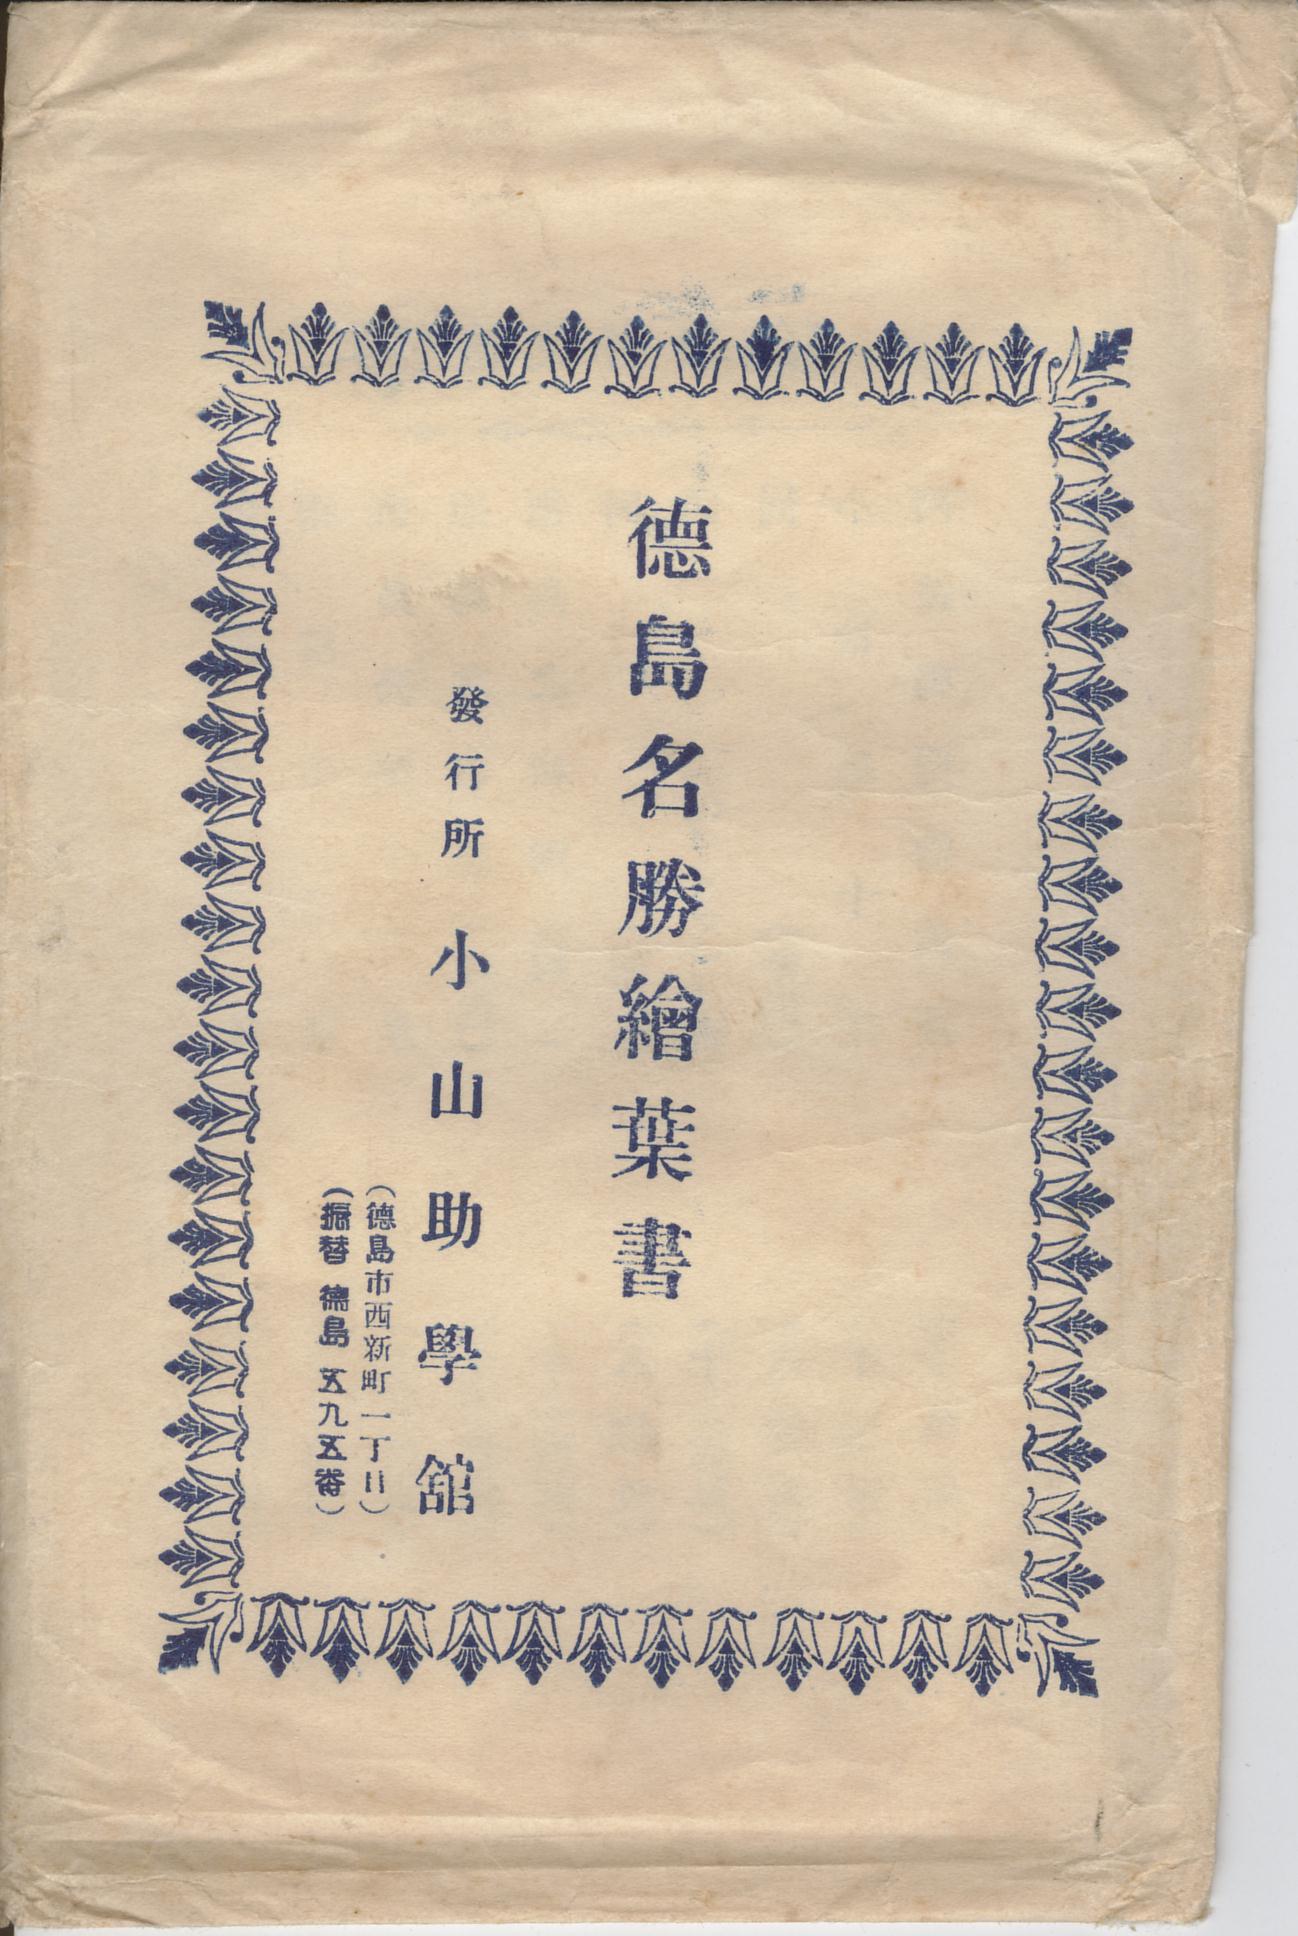 德島名勝繪葉書
發行所 小山助學舘
(德島市西新町一丁目)
(振替 德島 五九五番)